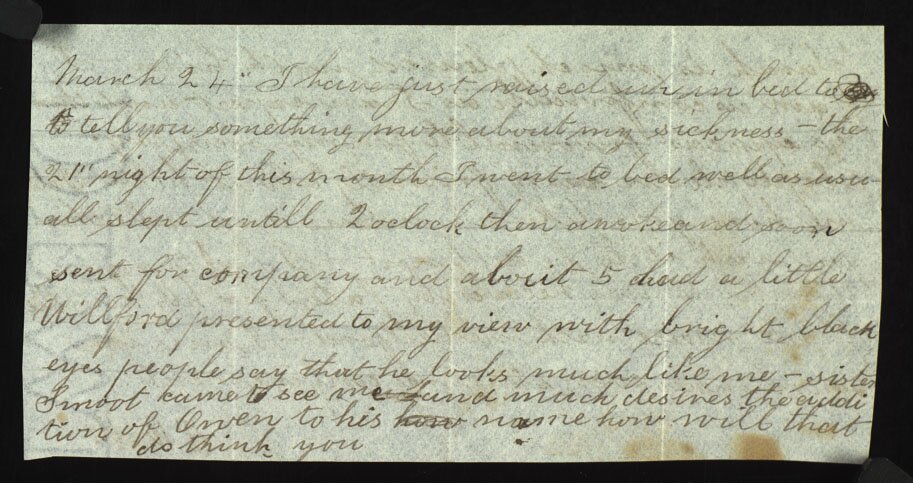 March 24" I have just raised up in bed to
to tell you something more about my sickness – the
21" night of this month I went to bed well as usu
all slept untill 2 oclock then awoke and soon
sent for company and about 5 had a little
Willford presented to my view with bright black
eyes people say that he looks much like me – sister
Smoot came to see me and much desires the addi
tion of Owen to his how name how will that
do think you